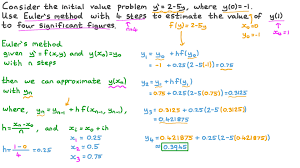 Consider the initial value problem y' = 2-5y, where y(0)=-1.
Use Euler's method with 4 steps to estimate the value of y(1)
to four significant figures.
n=4
f(y) = 2-5y
x₀=0
y₀=-1
xₙ=1
Euler's method
given y' = f(x,y) and y(x₀)=y₀
with n steps
then we can approximate y(xₙ)
with yₙ
where, yₙ = yₙ₋₁ + hf(xₙ₋₁, yₙ₋₁),
h = (xₙ-x₀)/n, and xᵢ = x₀+ih
h = (1-0)/4 = 0.25
x₁ = 0.25
x₂ = 0.5
x₃ = 0.75
y₁ = y₀ + hf(y₀)
= -1 + 0.25(2-5(-1)) = 0.75
y₂ = y₁ + hf(y₁)
= 0.75 + 0.25(2-5(0.75)) = 0.3125
y₃ = 0.3125 + 0.25(2-5(0.3125))
= 0.421875
y₄ = 0.421875 + 0.25(2-5(0.421875))
= 0.3945